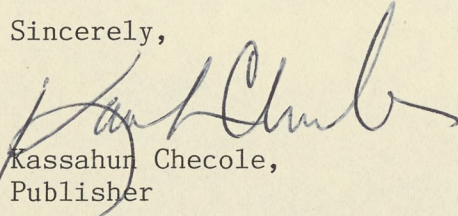 Sincerely,
Kassahun Checole,
Publisher